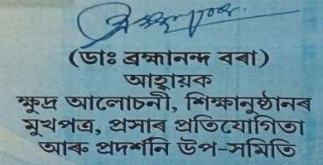 (ডাঃ ব্রহ্মানন্দ বৰা)
আহ্বায়ক
ক্ষুদ্ৰ আলোচনী, শিক্ষানুষ্ঠানৰ
মুখপত্ৰ, প্ৰসাৰ প্ৰতিযোগিতা
আৰু প্ৰদৰ্শনি উপ-সমিতি